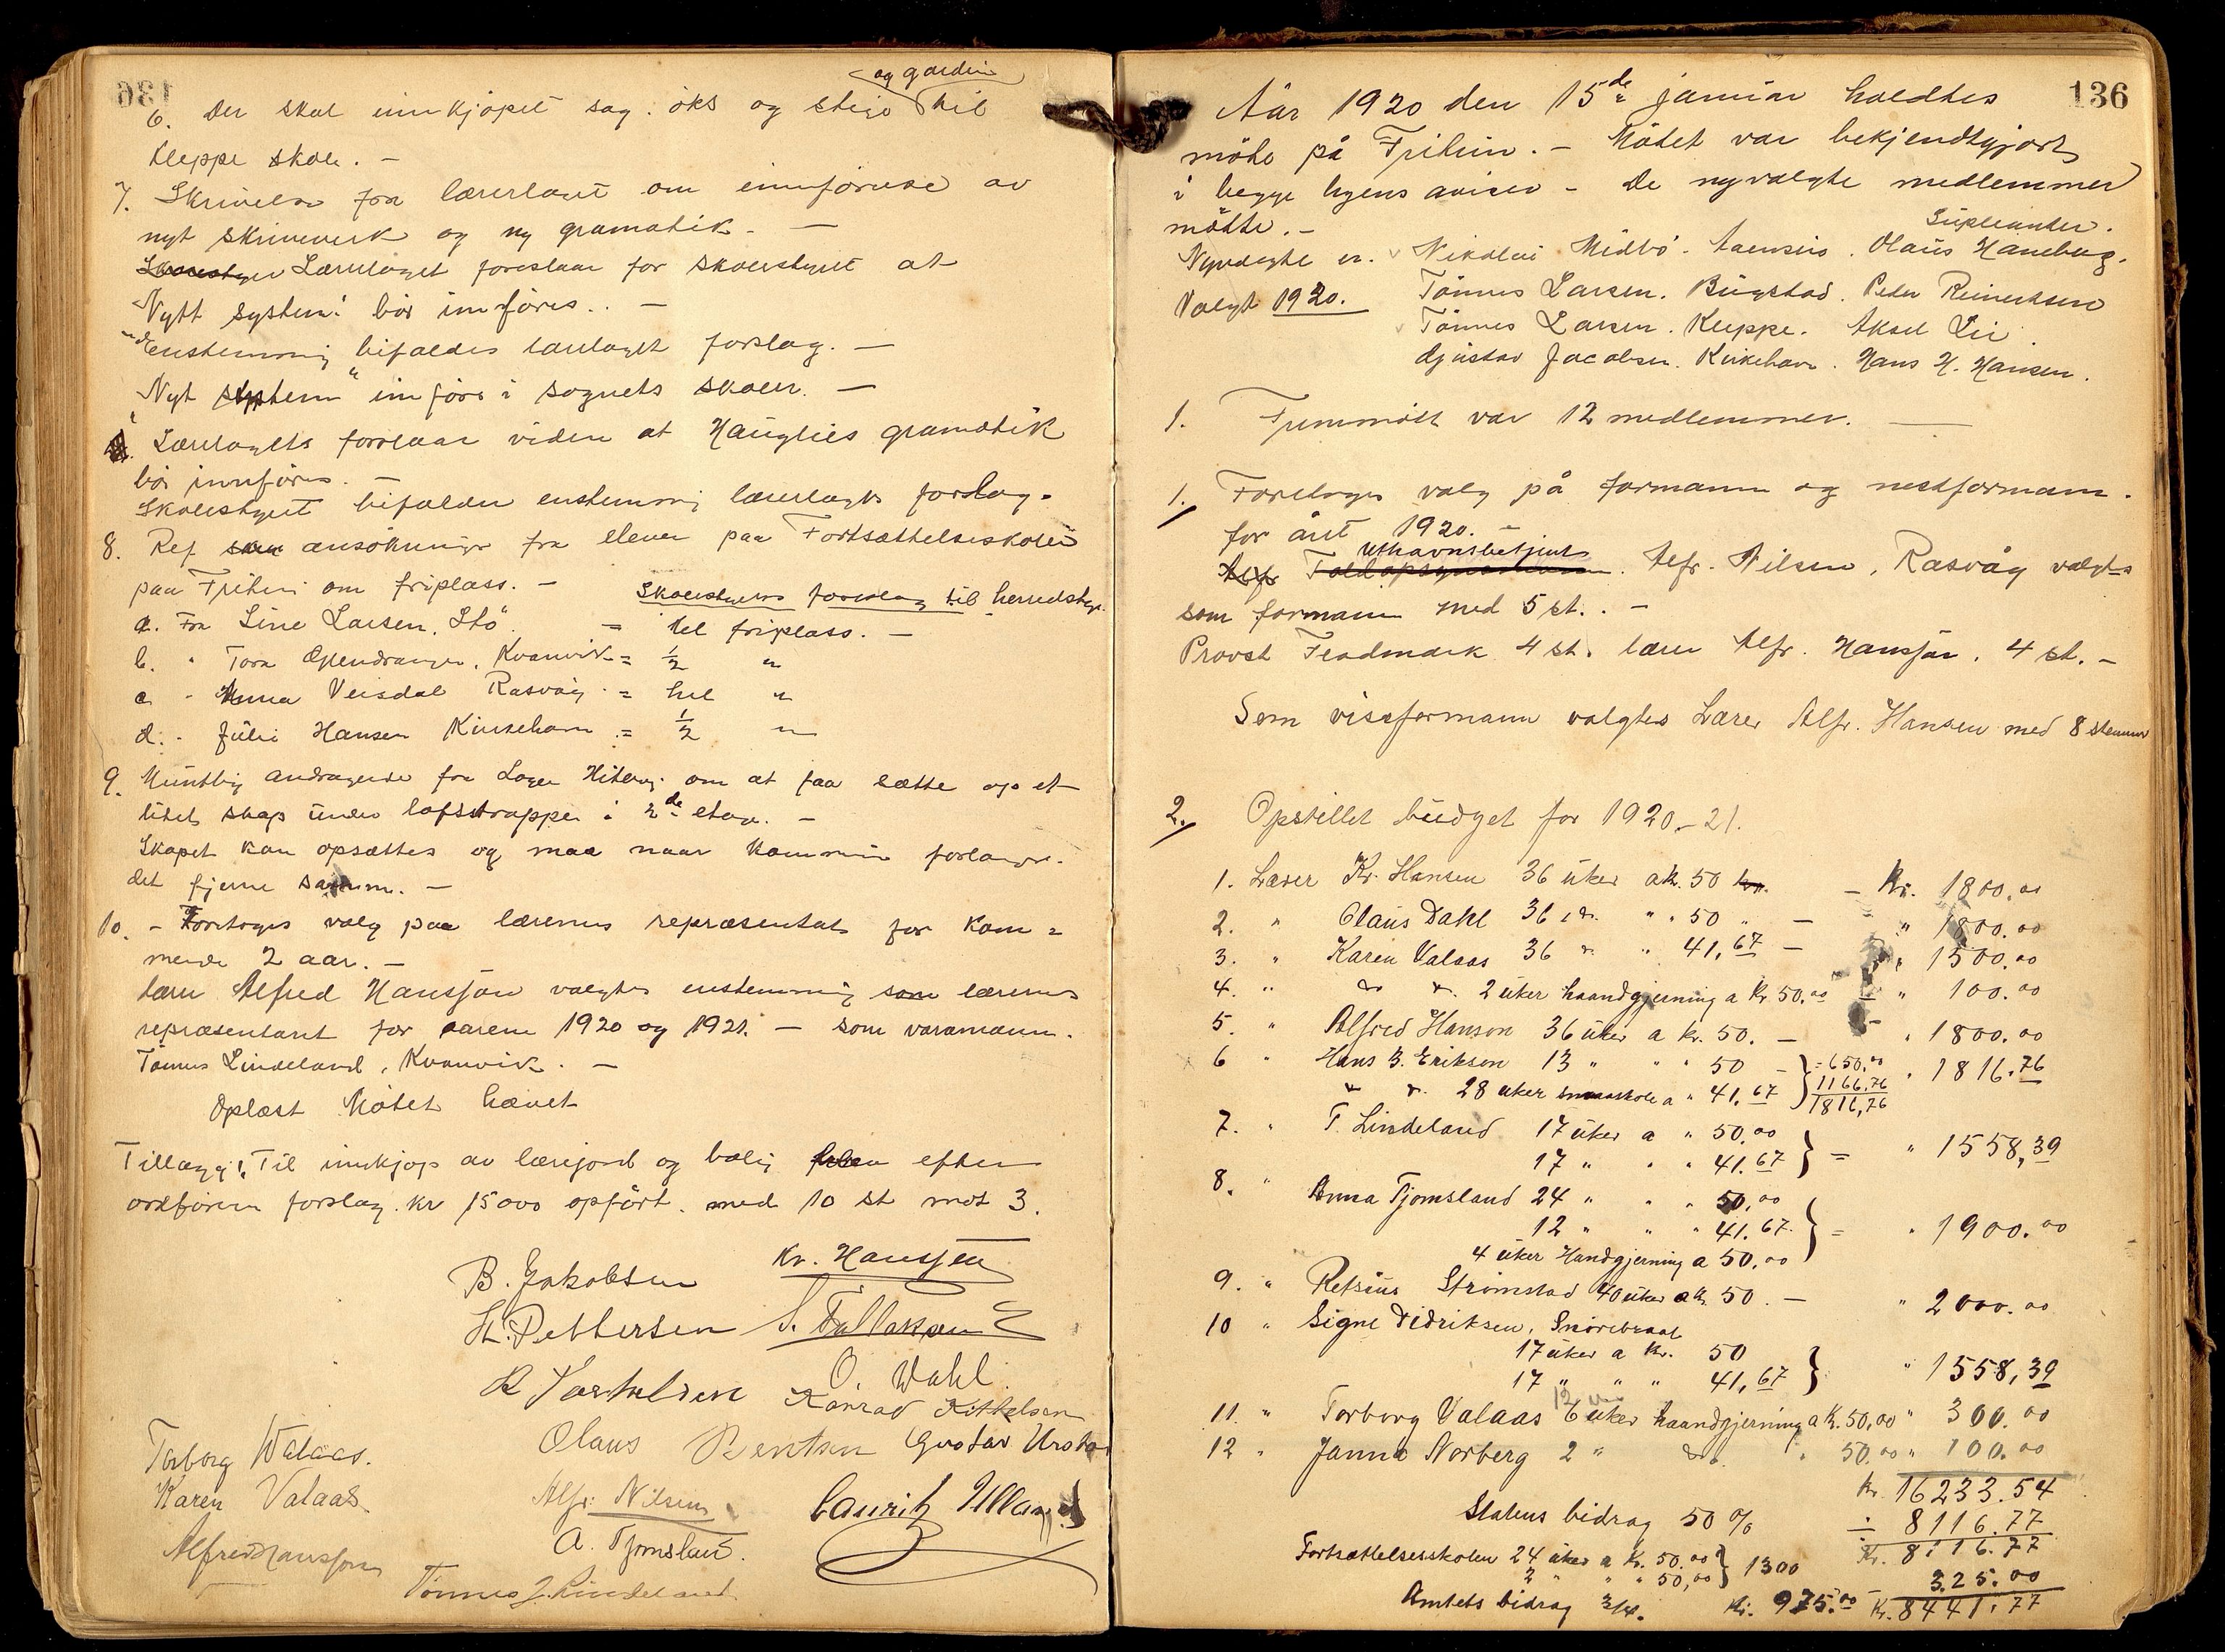 og gardin
6. Der skal innkjöpet sag. öks og stige til
Kleppe skole. -
7. Skrivelse fra lærerlaget om innförelse av
nyt skriveverk og ny gramatik. -
Lærerlaget foreslaar for skolestyret at
"Nytt system" bör innföres. -
Enstemmig bifaldes lærerlaget forslag. -
"Nyt system" innföres i sognets skoler. -
Lærerlagets foreslaar videre at Hauglies gramatik
bör innföres. -
Skolestyret bifalder enstemmig lærerlagets forslag.
8. Ref ansökninger fra elever paa Fortsættelsesskolen
paa Friheim om friplass. -
Skolestyrets forslag til herredsty.
a. Fra Line Larsen. Stö. = hel friplass. -
b. " Tora Opendranger, Kvanvik = 1/2 "
c. - Anna Veisdal Rasvåg = hel "
d. - Juli Hansen Kirkehavn = 1/2 "
9. Muntlig andragende fra Logen Hiterø om at faa sætte op et
litet skap under loftstrappen i 2de etage. -
Skapet kan opsættes og maa naar kommunen forlanger
det fjerne samme. -
10. - Foretoges valg paa lærernes repræsentat for kom=
mende 2 aar. -
lærer Alfred Hanssen valgtes enstemmig som lærernes
repræsentant for aarene 1920 og 1921. - som varamann.
Tönnes Lindeland, Kvanvik. -
Oplæst Mötet hævet
Tillægg! Til innkjöp av lærerjord og bolig efter
ordförern forslag. kr 15000 opfört. med 10 st mot 3.
B. Jakobsen Kr. Hanssen
St. Pettersen S. Tallaksen
O. Dahl
Konrad Kittelsen
Olaus Berntsen Gustav Urstad
Torborg Valaas.
Karen Valaas
Alfr. Nilsen Lauritz Ulland
Alfred Hanssen A. Tjomsland.
Tönnes J. Lindeland
136
Aar 1920 den 15de januar holdtes
möte på Friheim. - Mötet var bekjendtgjort
i begge byens aviser - De nyvalgte medlemmer
mötte. -
Supleanter.
Nyvalgte er. Nikolai Midbö. Aaensius. Olaus Haneberg.
Valgt 1920. Tönnes Larsen. Bugstad. Peder Reinertsen
Tönnes Larsen. Kleppe. Aksel Lie
Gjustav Jacobsen. Kirkehavn. Hans H. Hansen.
1. Fremmött var 12 medlemmer.
1. Foretoges valg på formann og nestformann.
for året 1920. -
Uthavnsbetjent Alfr. Nilsen, Rasvåg valgtes
som formann med 5 st. -
Provst Feadmark 4 st. lærer Alfr. Hanssen. 4 st. -
Som viseformann valgtes Lærer Alfr. Hansen med 8 stemmer
2. Opstillet budget for 1920-21.
1. Lærer Kr. Hansen 36 uker a k. 50 - Kr. 1800,00
2. " Olaus Dahl 36 do. " " 50 " - " 1800.00
3. " Karen Valaas 36 do. " 41,67 - " 1500.00
4. " do do. 2 uker haandgjerning a Kr 50.00 - " 100.00
5. " Alfred Hanson 36 uker a kr. 50. - " 1800.00
6 " Hans B. Erikson 13 " " " 50 - = 650.00 " 1816.76
do do. 28 uker smaaskole a " 41.67 1166.76
1816,76
7. " T. Lindeland 17 uker a " 50.00
17 " " " 41.67 = " 1558,39
8. " Anna Tjomsland 24 " " " 50.00
12 " " " 41.67. = " 1900.00
4 uker Handgjerning a 50.00
9. " Retsius Strömstad 40 uker a k. 50. - " 2000.00
10 " Signe Didriksen, Snörebraat
17 uker a Kr. 50
17 " " " 41,67 " 1558,39
12
11. " Torborg Valaas 6 uker haandgjerning a K. 50,00 " 300.00
12 " Janna Norberg 2 " do. " 50.00 " 100.00
Kr. 16233.54
Statens bidrag 50 % ÷ 8116.77
Kr. 8116.77
Fortsættelsesskolen 24 uker a Kr. 50.00 1300
2 " " " 50,00 325.00
Amtets bidrag 3/4. Kr. 975.00 - Kr. 8441.77